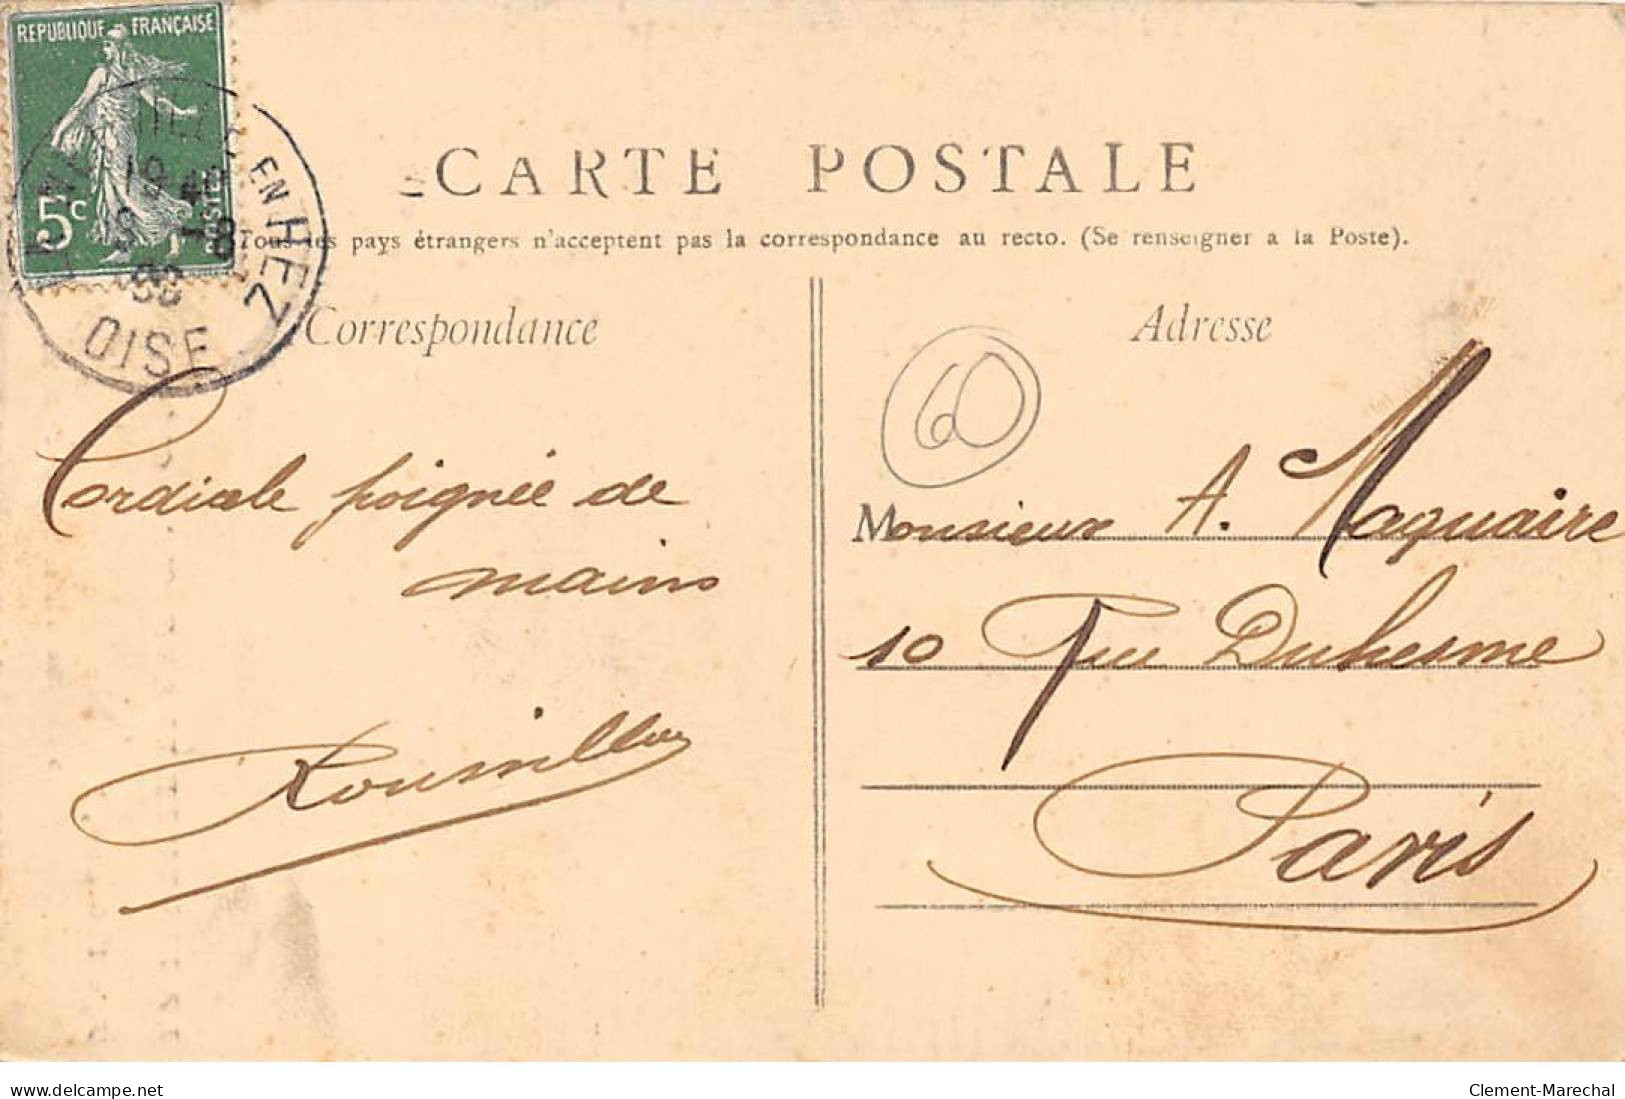 REPUBLIQUE FRANÇAISE
5c POSTES
EN HEZ
OISE
CARTE POSTALE
Tous les pays étrangers n'acceptent pas la correspondance au recto. (Se renseigner à la Poste).
Correspondance
Cordiale poignée de
mains
Adresse
60
Monsieur A. Maquaire
10 Rue Duhesme
Paris
www.delcampe.net
Clement-Marechal